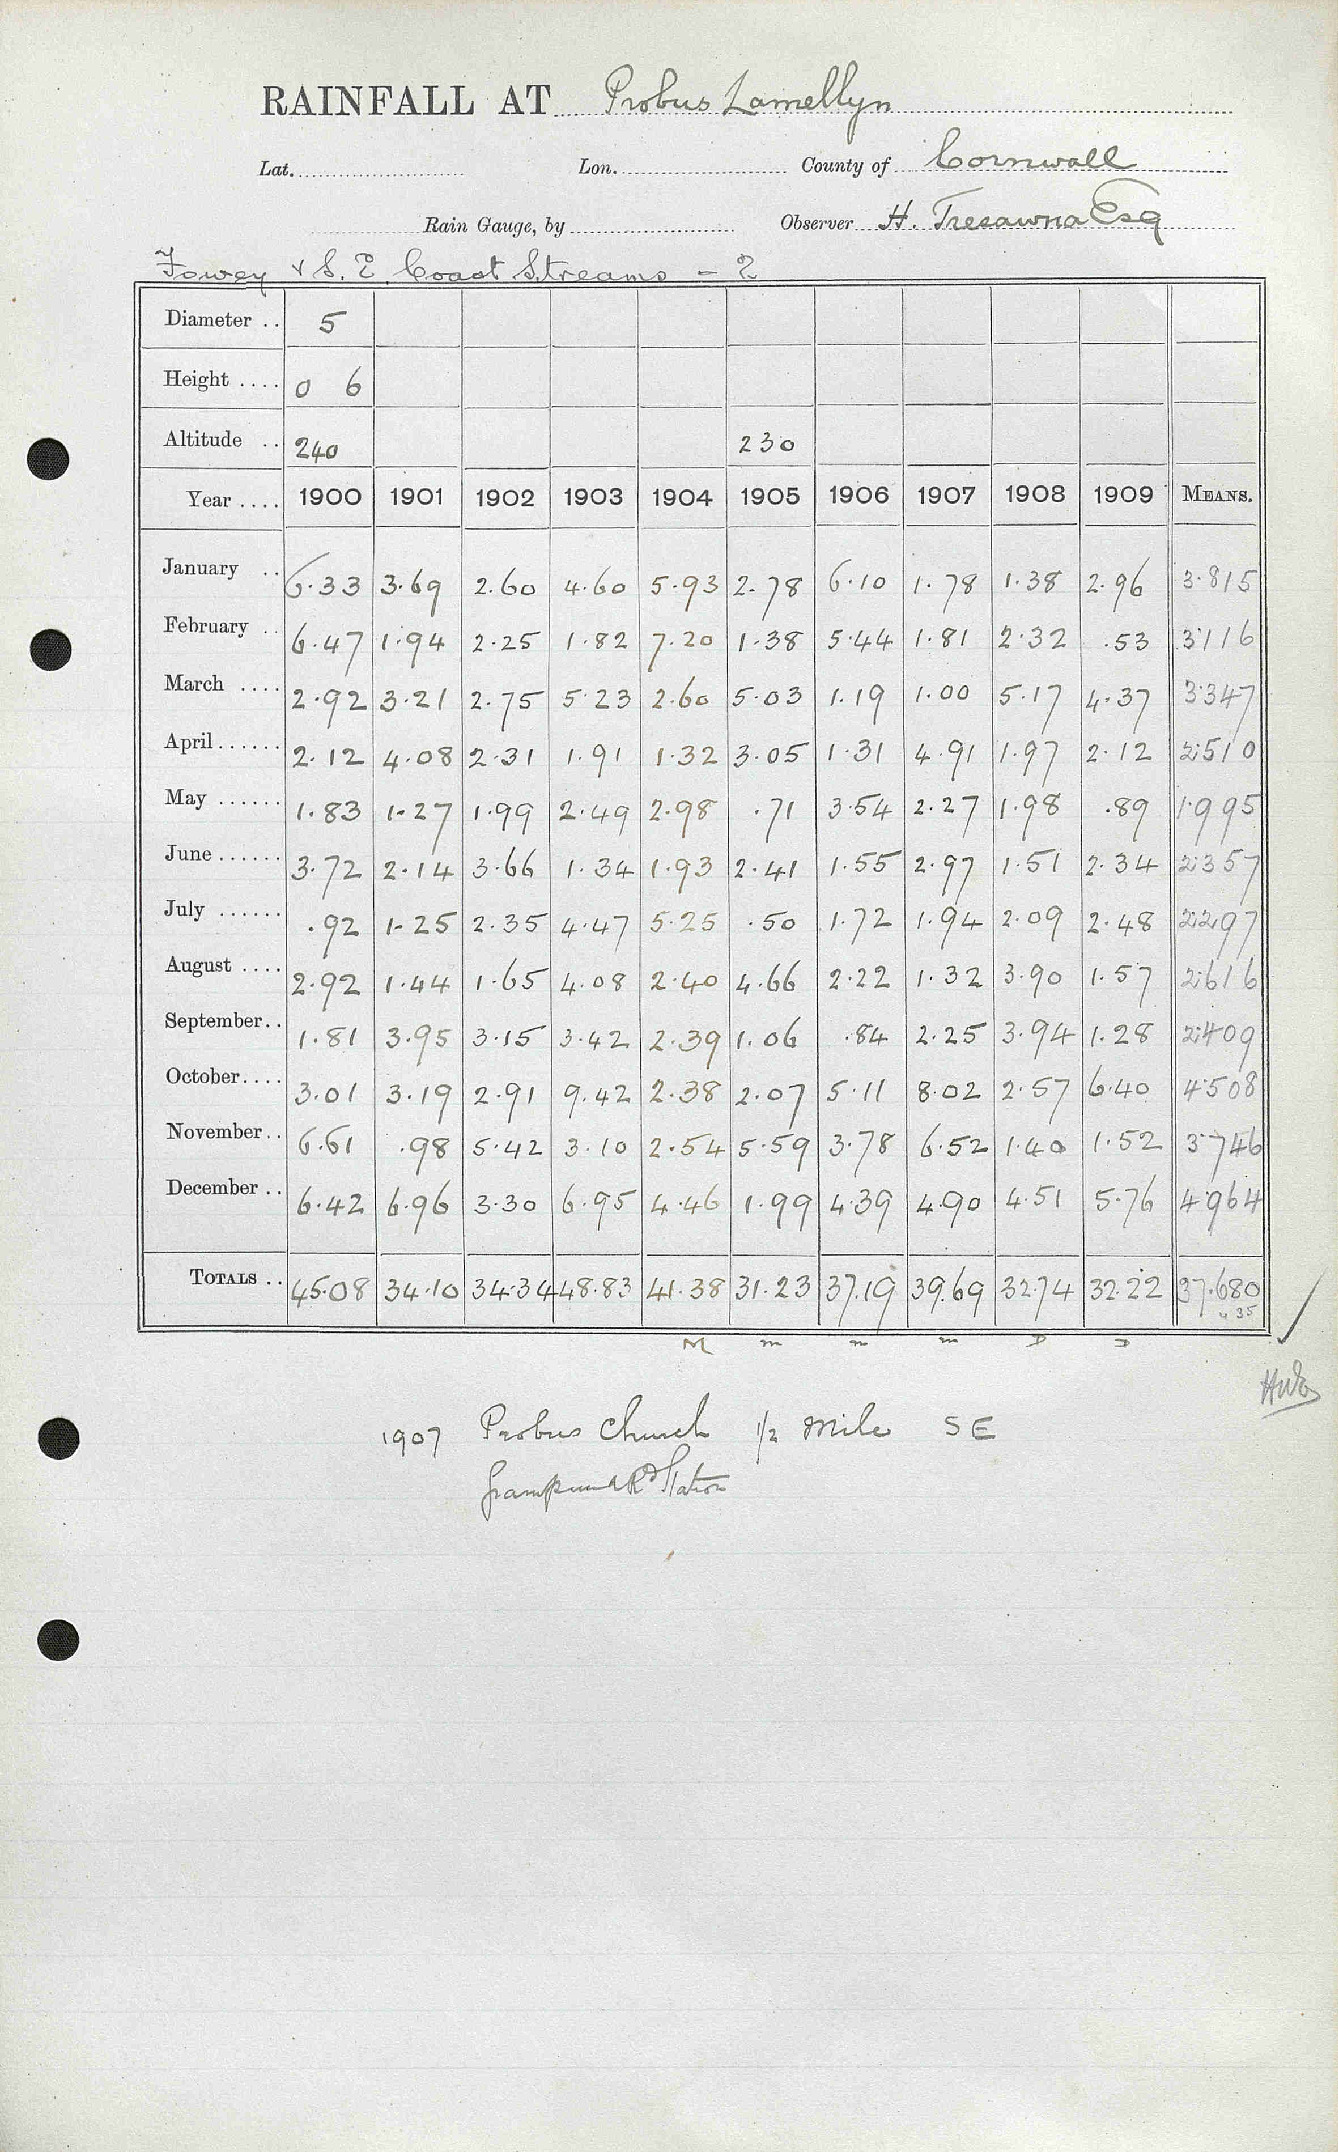 RAINFALL AT Probus Lamellyn
Lat. Lon. County of Cornwall
Rain Gauge, by Observer H. Tresawna Esq
Fowey & S. E. Coast Streams - 2
Diameter .. 5
Height .... 0 6
Altitude .. 240 230
Year .... 1900 1901 1902 1903 1904 1905 1906 1907 1908 1909 MEANS.
January .. 6.33 3.69 2.60 4.60 5.93 2.78 6.10 1.78 1.38 2.96 3.815
February .. 6.47 1.94 2.25 1.82 7.20 1.38 5.44 1.81 2.32 .53 3.116
March .... 2.92 3.21 2.75 5.23 2.60 5.03 1.19 1.00 5.17 4.37 3.347
April...... 2.12 4.08 2.31 1.91 1.32 3.05 1.31 4.91 1.97 2.12 2.510
May ...... 1.83 1.27 1.99 2.49 2.98 .71 3.54 2.27 1.98 .89 1.995
June ...... 3.72 2.14 3.66 1.34 1.93 2.41 1.55 2.97 1.51 2.34 2.357
July ...... .92 1.25 2.35 4.47 5.25 .50 1.72 1.94 2.09 2.48 2.297
August .... 2.92 1.44 1.65 4.08 2.40 4.66 2.22 1.32 3.90 1.57 2.616
September.. 1.81 3.95 3.15 3.42 2.39 1.06 .84 2.25 3.94 1.28 2.409
October.... 3.01 3.19 2.91 9.42 2.38 2.07 5.11 8.02 2.57 6.40 4.508
November.. 6.61 .98 5.42 3.10 2.54 5.59 3.78 6.52 1.40 1.52 3.746
December .. 6.42 6.96 3.30 6.95 4.46 1.99 4.39 4.90 4.51 5.76 4.964
TOTALS .. 45.08 34.10 34.34 48.83 41.38 31.23 37.19 39.69 32.74 32.22 37.680
35
M m m m D D
1907 Probus Church 1/2 Mile SE
Grampound Rd Station